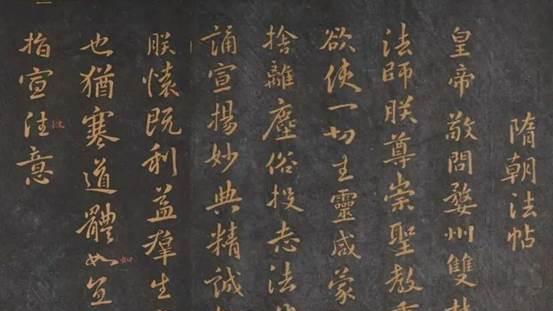 隋朝法帖
皇帝敬問婺州雙
法師朕尊崇聖教
欲使一切生靈咸蒙
捨離塵俗投志法
誦宣揚妙典精誠
朕懷既利益羣生
也猶寒道體如宜
如
指宣往意